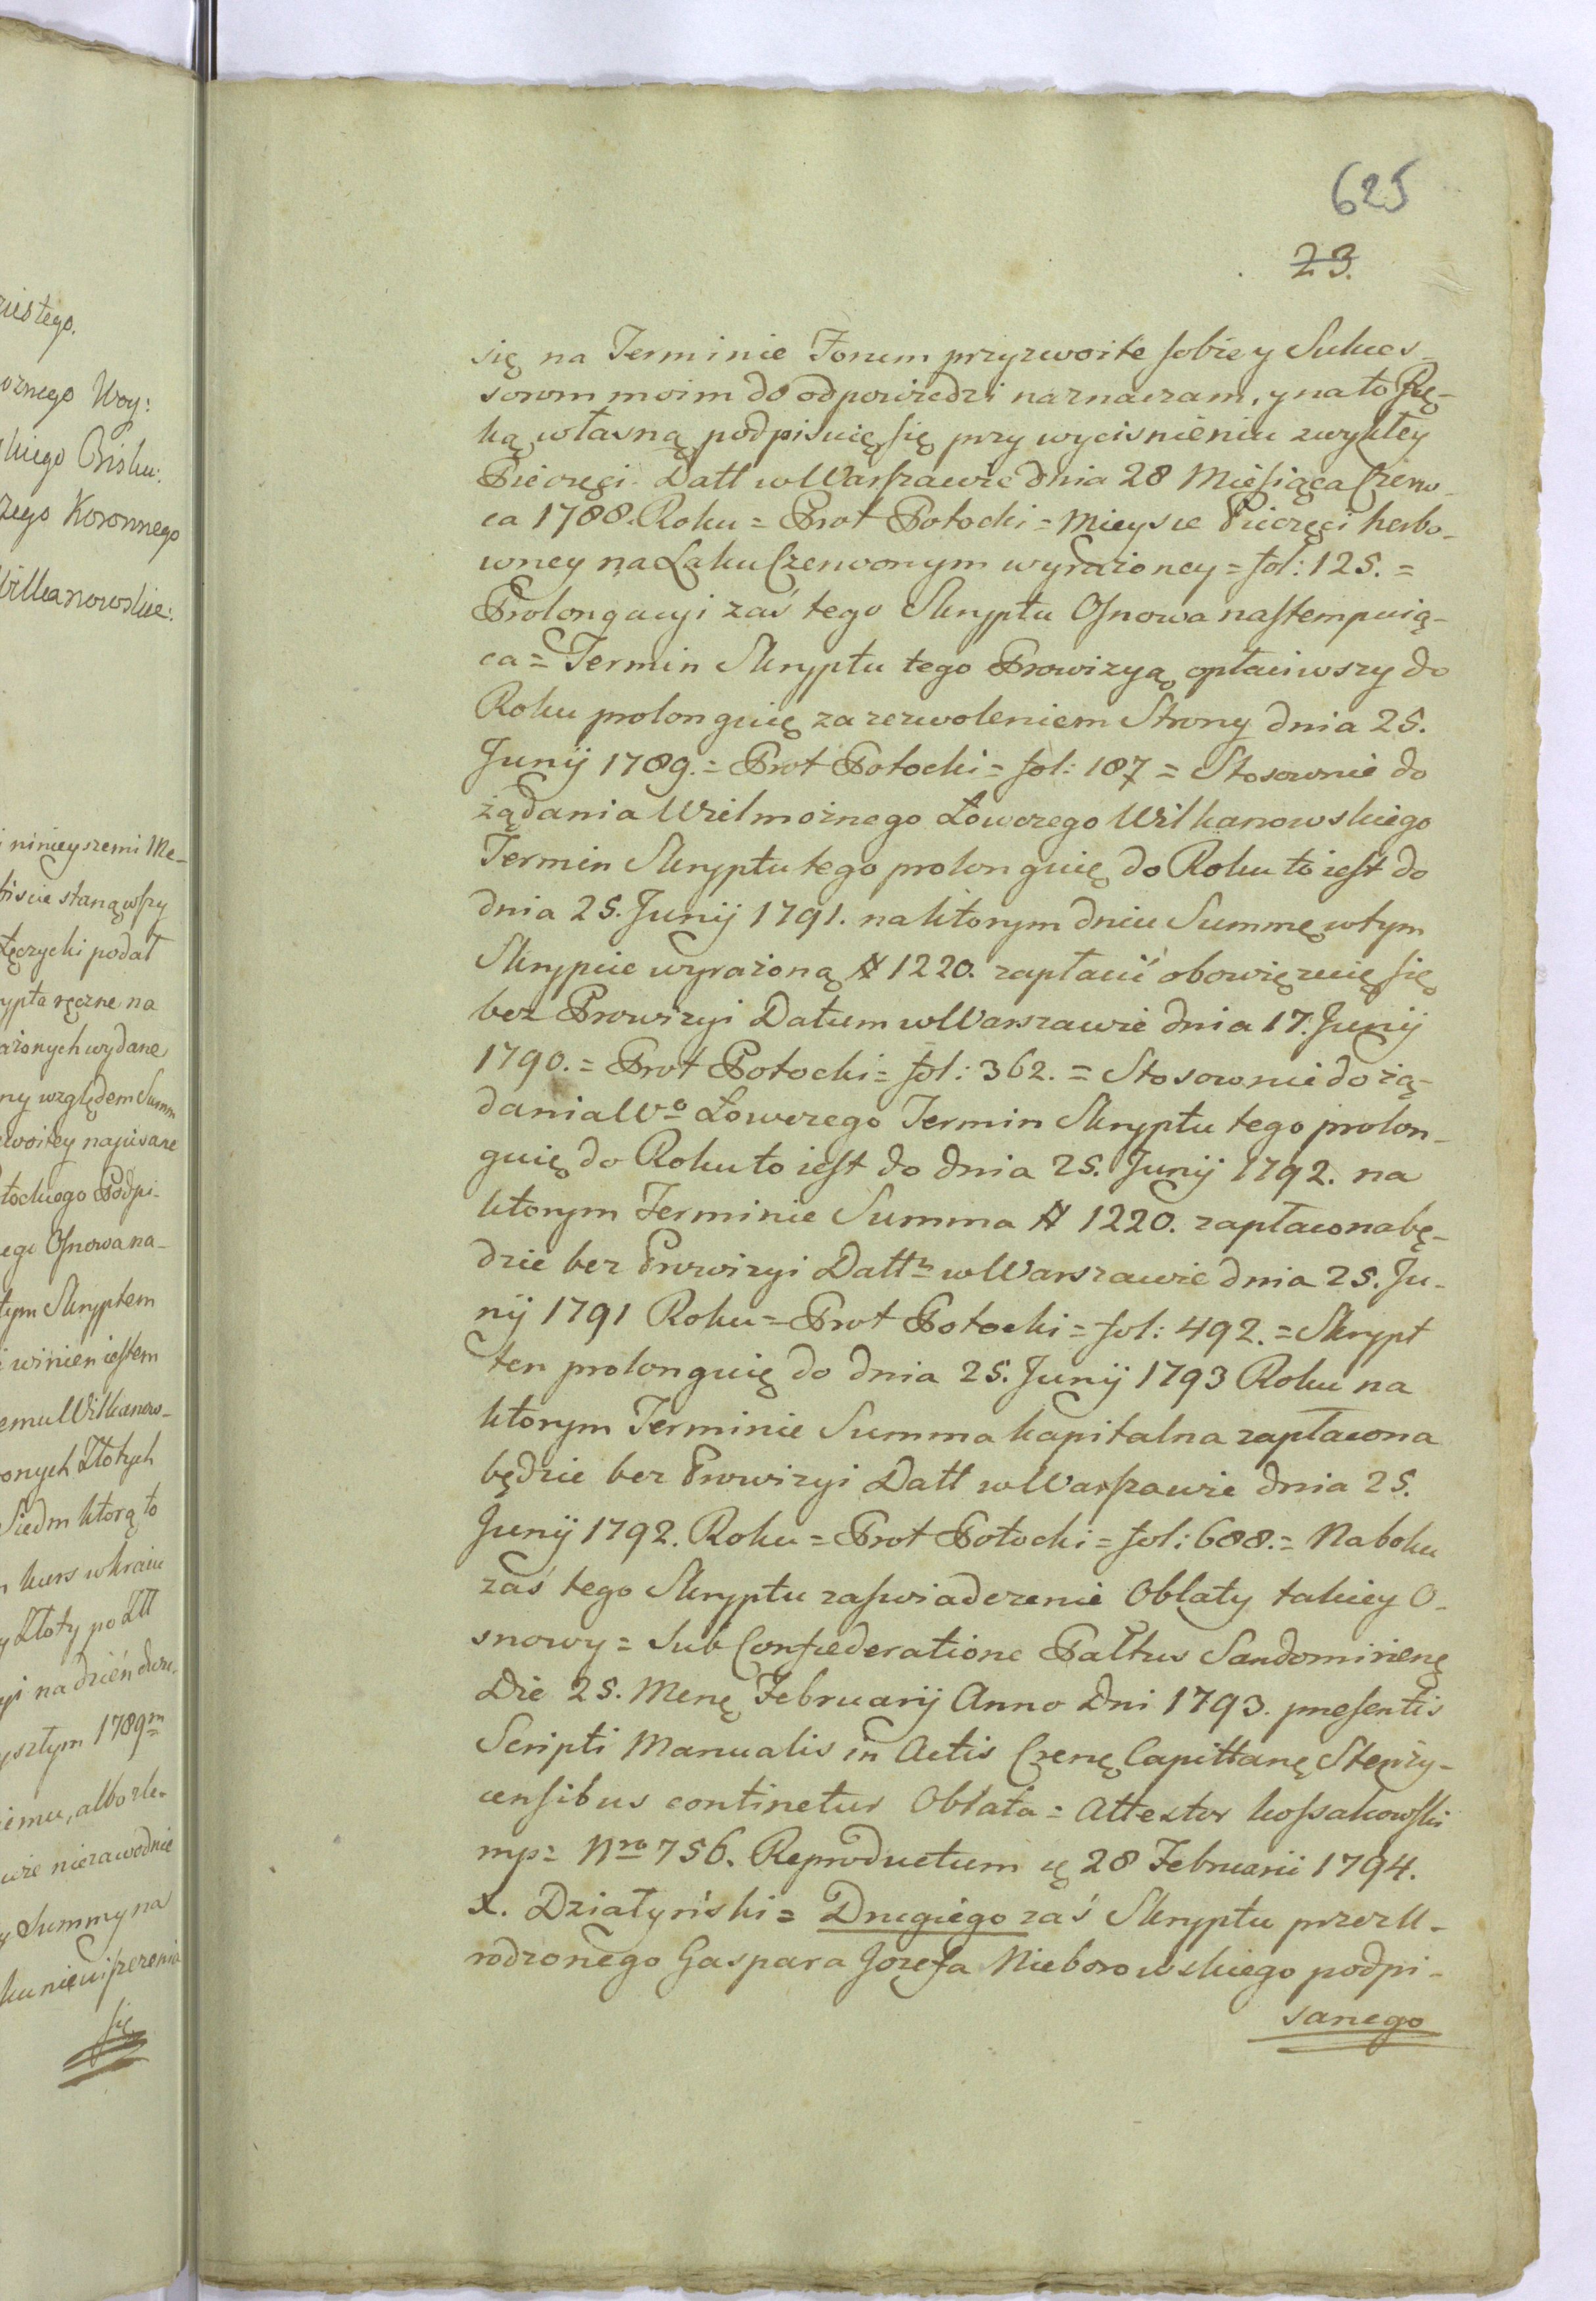 625
23.
się na Terminie Forum przyzwoite sobie y Sukces-
sorom moim do odpowiedzi naznaczam, y na to Rę-
ką własną podpisuię się przy wycisnieniu zwykłey
Pieczęci. Datt w Warszawie dnia 28 Miesiąca Czerw-
ca 1788. Roku = Prot Potocki = Mieysce Pieczęci herbo-
wney na Laku Czerwonym wyrażoney = fol: 125. =
Prolongacyi zaś tego Skryptu Osnowa nastempuią-
ca = Termin Skryptu tego Prowizyą opłaciwszy do
Roku prolonguię za zezwoleniem Strony dnia 25.
Junij 1789. = Prot Potocki = fol: 187 = Stosownie do
żądania Wielmożnego Łowczego Wilkanowskiego
Termin Skryptu tego prolonguię do Roku to iest do
dnia 25. Junij 1791. na ktorym dniu Summę w tym
Skrypcie wyrażoną # 1220. zapłacić obowięzuię się
bez Prowizyi Datum w Warszawie dnia 17. Junij
1790. = Prot Potocki = fol: 362. = Stosownie do żą-
dania Wo Łowczego Termin Skryptu tego prolon-
guię do Roku to iest do dnia 25. Junij 1792. na
ktorym Terminie Summa # 1220. zapłacona bę-
dzie bez Prowizyi Datt w Warszawie dnia 25. Ju-
nij 1791 Roku = Prot Potocki = fol: 492. = Skrypt
ten prolonguię do dnia 25. Junij 1793 Roku na
ktorym Terminie Summa kapitalna zapłacona
będzie bez Prowizyi Datt w Warszawie dnia 25.
Junij 1792. Roku = Prot Potocki = fol: 688. = Na boku
zaś tego Skryptu zaswiadczenie Oblaty takiey O-
snowy = Sub Confæderatione Pałtus Sandomirienę
Die 25. Menę Februarij Anno Dni 1793. presentis
Scripti Manualis in Actis Czenę Capittanę Stęży-
censibus continetur Oblata = Attestor Kossakowski
mp = Nro 756. Reproductum ę 28 Februarii 1794.
X. Działyński = Drugiego zaś Skryptu przez U-
rodzonego Gaspara Jozefa Nieborowskiego podpi-
sanego
oznego Woy:
zego Koronnego
ninieyszemi Me-
stanąwszy
Łęczycki podał
ręczne na
wydane
ny względem Summ
Podpi-
Osnowa na-
tym Skryptem
winien iestem
Złotych
Siedm ktorą to
kurs w kraiu
Złoty po Złł
na dzień dwu-
1789m
albo zle-
niezawodnie
Summy na
się